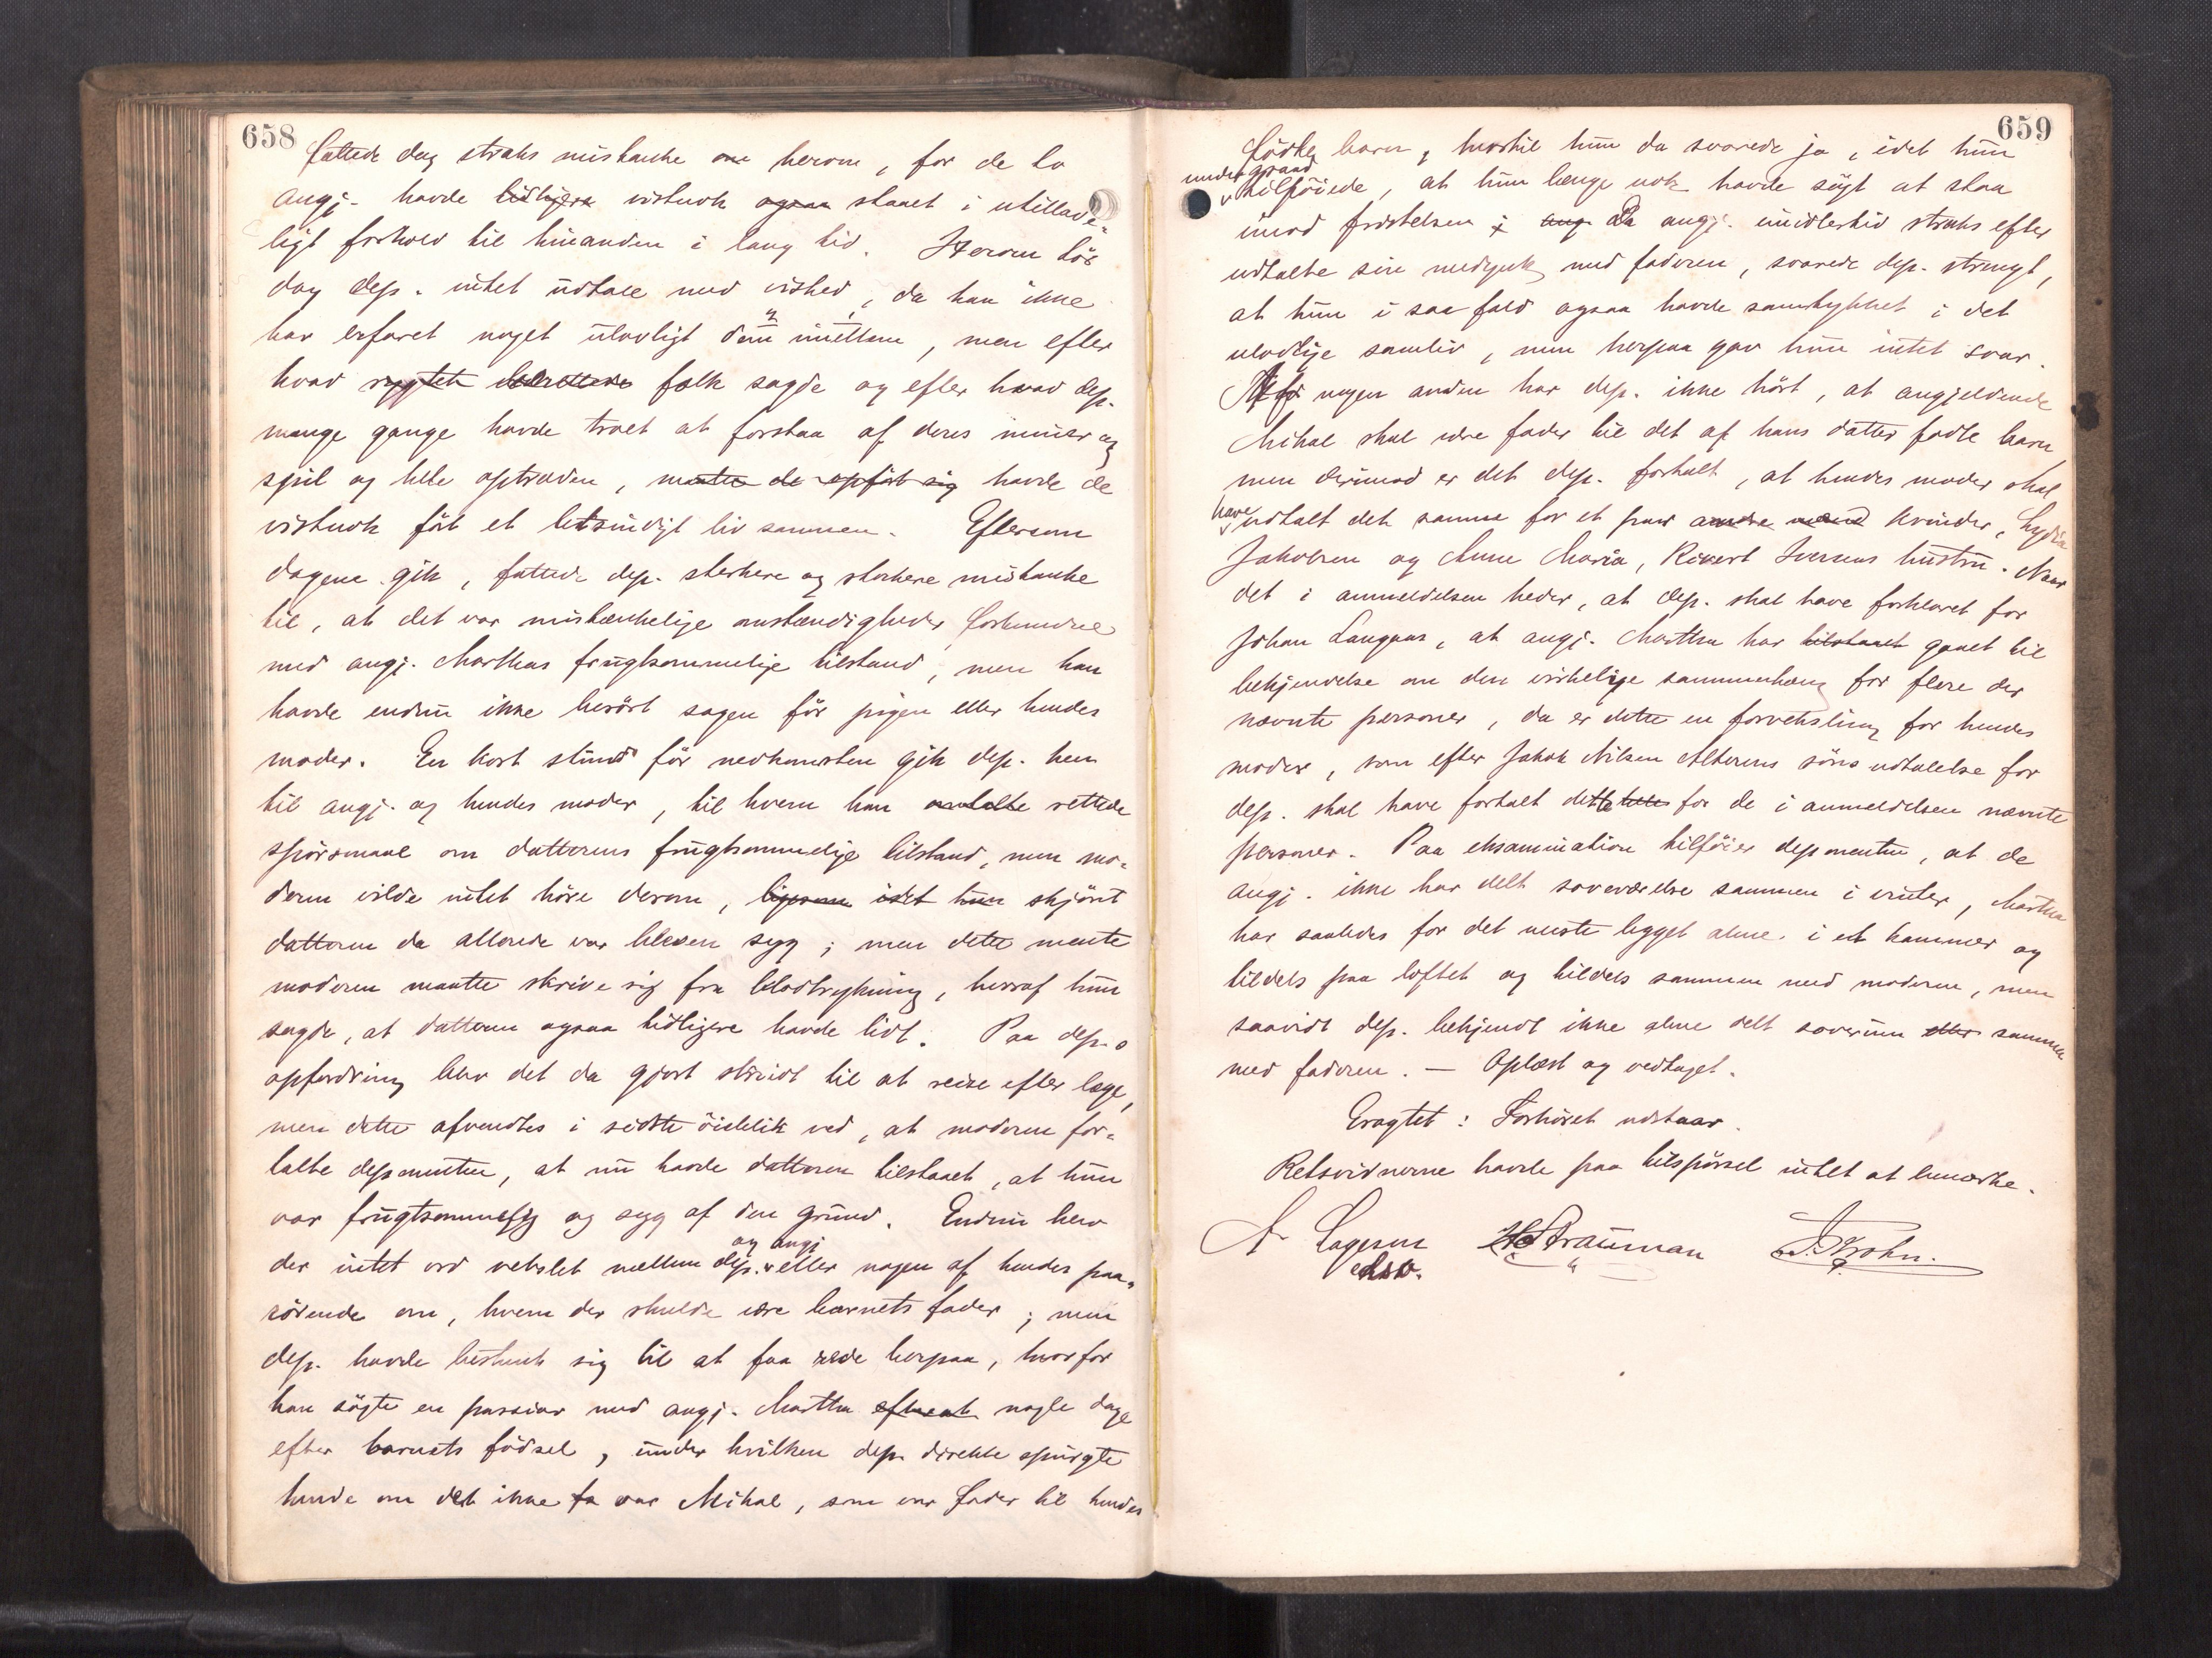 658
fattede dog straks mistanke om herom, for de to
angj. havde tidligere vistnok ogsaa staaet i utillade-
ligt forhold til hinanden i lang tid. Herom tör
dog dep. intet udtale med vished, da han ikke
har erfaret noget ulovligt dem imellem, men efter
hvad rygtet berettede folk sagde og efter hvad dep.
mange gange havde troet at forstaa af deres miner og
spil og hele optræden, maatte de opfört sig havde de
vistnok fört et letsindigt liv sammen. Eftersom
dagene gik, fattede dep. sterkere og sterkere mistanke
til, at det var mistænkelige omstændigheder forbundne
med angj. Marthas frugtsommelige tilstand, men han
havde endnu ikke berört sagen för pigen eller hendes
moder. En kort stund för nedkomsten gik dep. hen
til angj. og hendes moder, til hvem han omtalte rettede
spörsmaal om datterens frugtsommelige tilstand, men mo-
deren vilde intet höre derom, ligesom idet hun skjönt
datteren da allerede var bleven syg; men dette mente
moderen maatte skrive sig fra blodtrykning, hvoraf hun
sagde, at datteren ogsaa tidligere havde lidt. Paa dep.s
opfordring blev det da gjort skridt til at reise efter læge,
men dette afvendtes i sidste öieblik ved, at moderen for-
talte deponenten, at nu havde datteren tilstaaet, at hun
var frugtsommelig og syg af den grund. Endnu blev
der intet ord vekslet mellem dep. og angj eller nogen af hendes paa-
rörende om, hvem der skulde være barnets fader; men
dep. havde bestemt sig til at faa rede herpaa, hvorfor
han sögte en passiar med angj. Martha efterat nogle dage
efter barnets födsel, under hvilken dep. direkte spurgte
hende om det ikke fa var Mikal, som var fader til hendes
659
födte barn, hvortil hun da svarede ja, idet hun
under graad tilföiede, at hun længe nok havde sögt at staa
imod fristelsen; ang Da angj. imidlertid straks efter
udtalte sin medynk med faderen, svarede dep. strengt,
at hun i saa fald ogsaa havde samtykket i det
ulovlige samliv, men herpaa gav hun intet svar.
Af nogen anden har dep. ikke hört, at angjeldende
Mikal skal være fader til det af hans datter fødte barn
men derimod er det dep. fortalt, at hendes moder skal
have udtalt det samme for et par andre mænd kvinder, Lydia
Jakobsen og Anne Maria, Rikert Iversens hustru. Naar
det i anmeldelsen heder, at dep. skal have forklaret for
Johan Langaas, at angj. Martha har tilstaaet gaaet til
bekjendelse om den virkelige sammenhæng for flere der
nævnte personer, da er dette en forveksling for hendes
moder, som efter Jakob Nilsen Alterens söns udtalelse for
dep. skal have fortalt dette for de i anmeldelsen nævnte
personer. Paa eksamination tilföier deponenten, at de
angj. ikke har delt soveværelse sammen i vinter, Martha
har saaledes for det meste ligget alene i et kammer og
tildels paa loftet og tildels sammen med moderen, men
saavidt dep. bekjendt ikke alene delt soverum eller sammen
med faderen. — Oplæst og vedtaget.
Eragtet: Forhöret udstaar.
Retsvidnerne havde paa tilspörsel intet at bemærke.
Trauman J. Krohn.